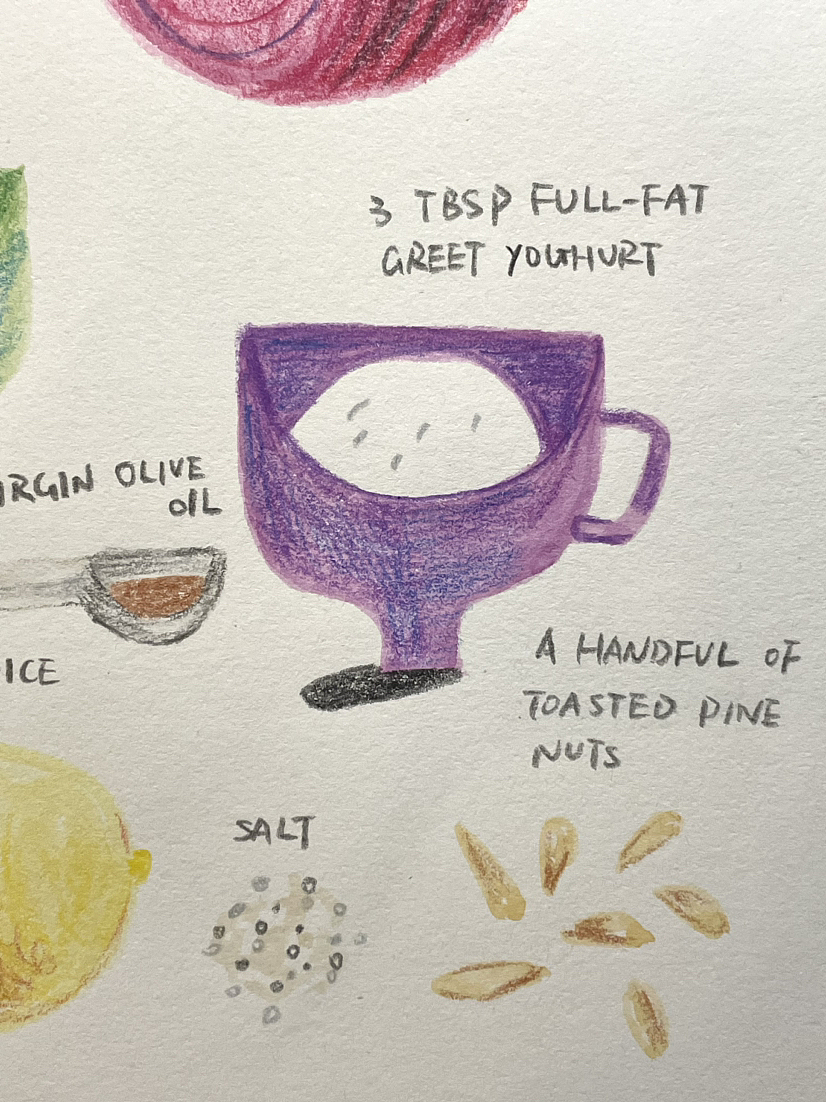 3 TBSP FULL-FAT
GREET YOGHURT
OLIVE
OIL
A HANDFUL OF
TOASTED PINE
NUTS
SALT